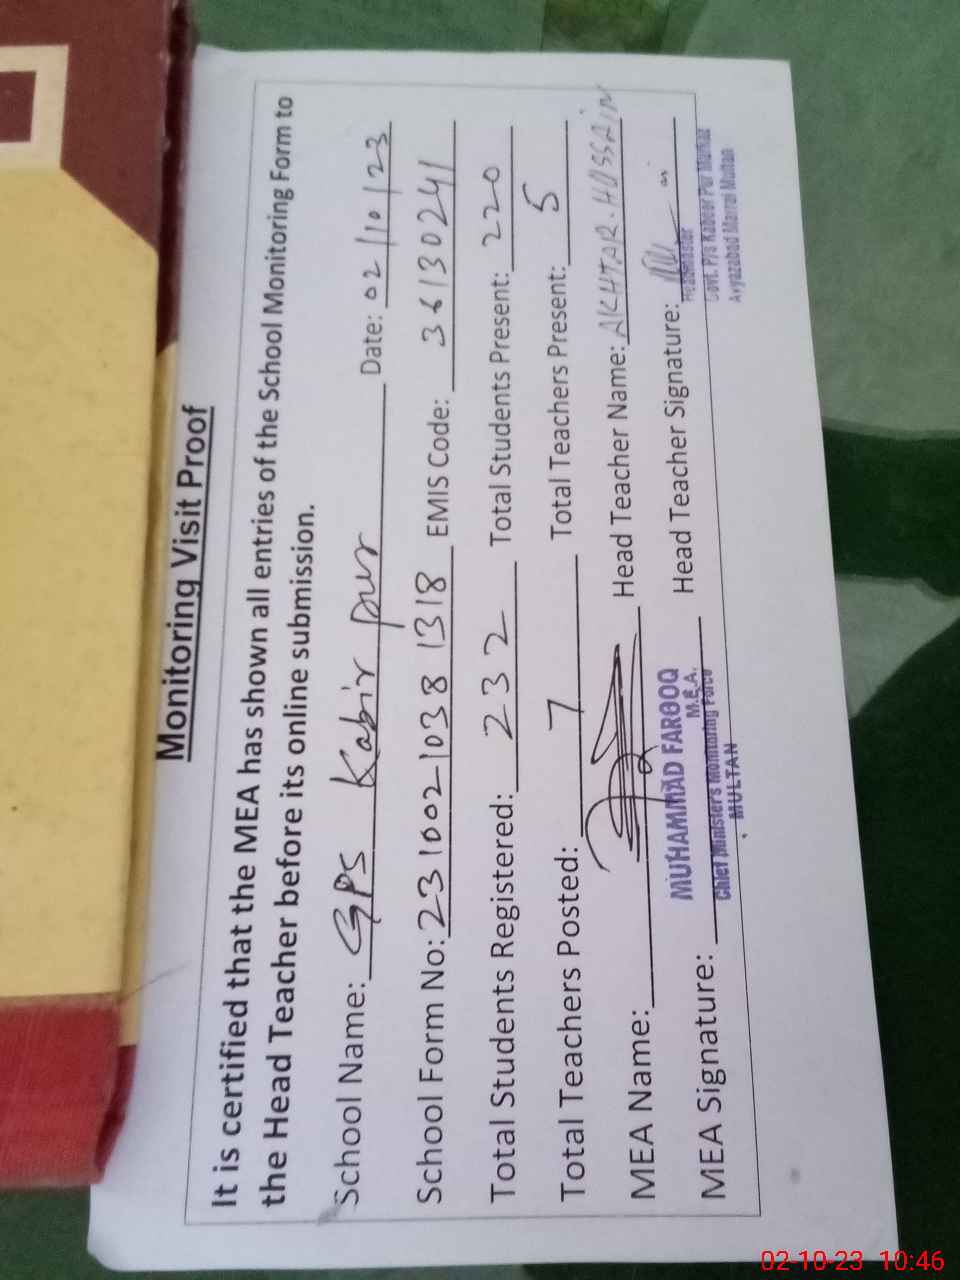 Monitoring Visit Proof
It is certified that the MEA has shown all entries of the School Monitoring Form to
the Head Teacher before its online submission.
School Name: GPS Kabir pur Date: 02/10/23
School Form No: 2310021038 1318 EMIS Code: 36130241
Total Students Registered: 232 Total Students Present: 220
Total Teachers Posted: 7 Total Teachers Present: 5
MEA Name: Head Teacher Name: AKHTAR.HOSSAIN
MUHAMMAD FAROOQ
M.E.A.
MEA Signature: Head Teacher Signature:
Chief Minister's Monitoring Force
MULTAN
Headmaster
Govt. P/s Kabeer Pur Markaz
Ayyazabad Marral Multan
02-10-23 10:46